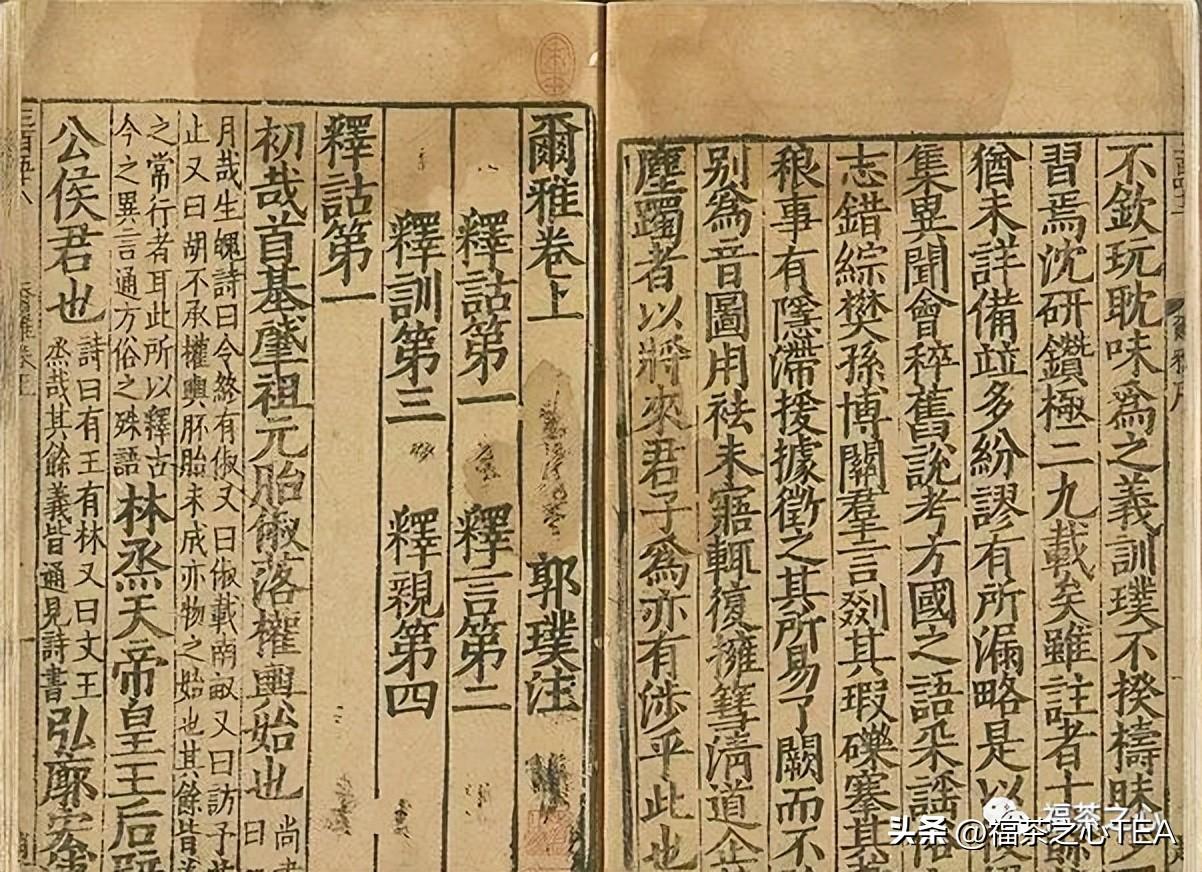 不欽玩耽味爲之義訓璞不揆檮昧少
習焉沈研鑽極二九載矣雖註者十餘
猶未詳備竝多紛謬有所漏略是以
集異聞會稡舊說考方國之語采謠俗
志錯綜樊孫博關羣言剟其瑕礫搴其
稂事有隱滯援據徵之其所易了闕而不
別爲音圖用袪未寤輒復擁篲淸道企
塵躅者以將來君子爲亦有涉乎此也
爾雅卷上 郭璞注
釋詁第一 釋言第二
釋訓第三 釋親第四
釋詁第一
初哉首基肇祖元胎俶落權輿始也 尚書曰
月哉生魄詩曰令終有俶又曰俶載南畝又曰訪予
止又曰胡不承權輿胚胎未成亦物之始也其餘皆
之常行者耳此所以釋古
今之異言通方俗之殊語
林烝天帝皇王后辟
公侯君也
詩曰有王有林又曰文王
烝哉其餘義皆通見詩書
弘廓宏
福茶之心
头条 @福茶之心TEA